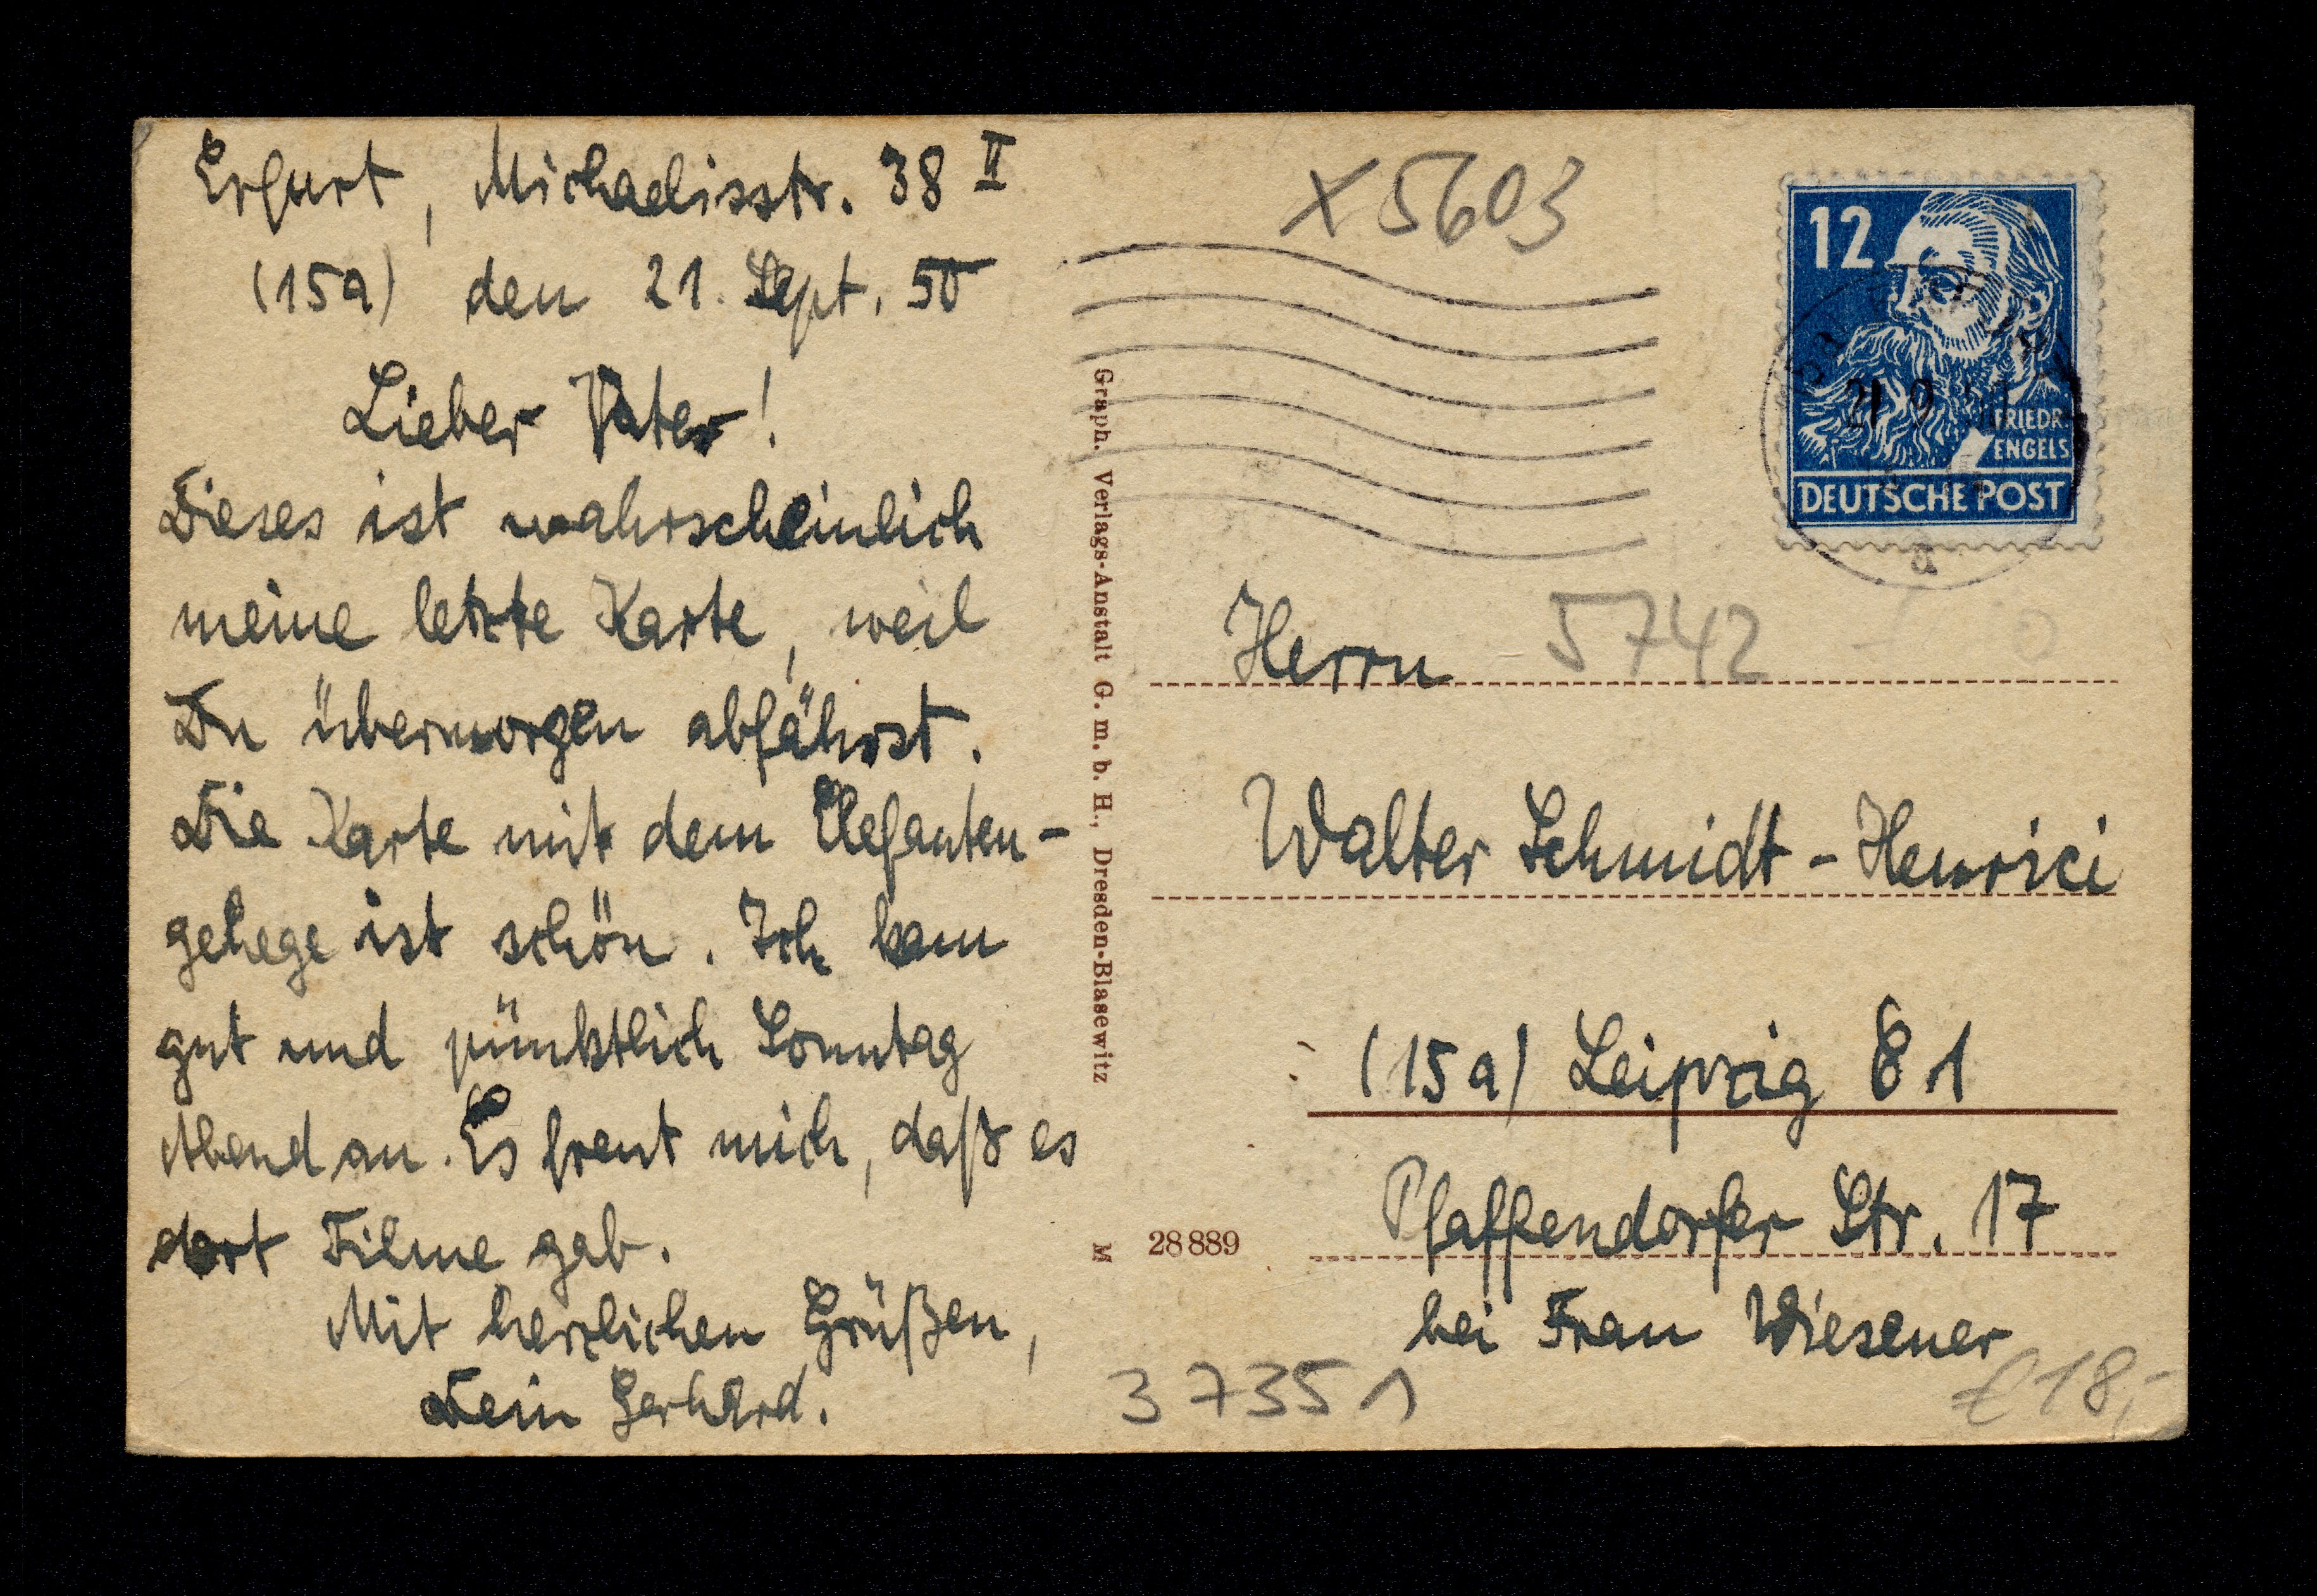 Erfurt, Michaelisstr. 38 II
(15a) den 21. Sept. 50
Lieber Vater!
Dieses ist wahrscheinlich
meine letzte Karte, weil
Du übermorgen abfährst.
Die Karte mit dem Elefanten-
gehege ist schön. Ich kam
gut und pünktlich Sonntag
Abend an. Es freut mich, daß es
dort Filme gab.
Mit herzlichen Grüßen,
Dein Gerhard.
Graph. Verlags-Anstalt G. m. b. H., Dresden-Blasewitz
M 28889
X 5603
12
FRIEDR.
ENGELS
DEUTSCHE POST
21 9
a
Herrn
5742
Walter Schmidt-Henrici
(15a) Leipzig C 1
Pfaffendorfer Str. 17
bei Frau Wiesener
37351
€18,-